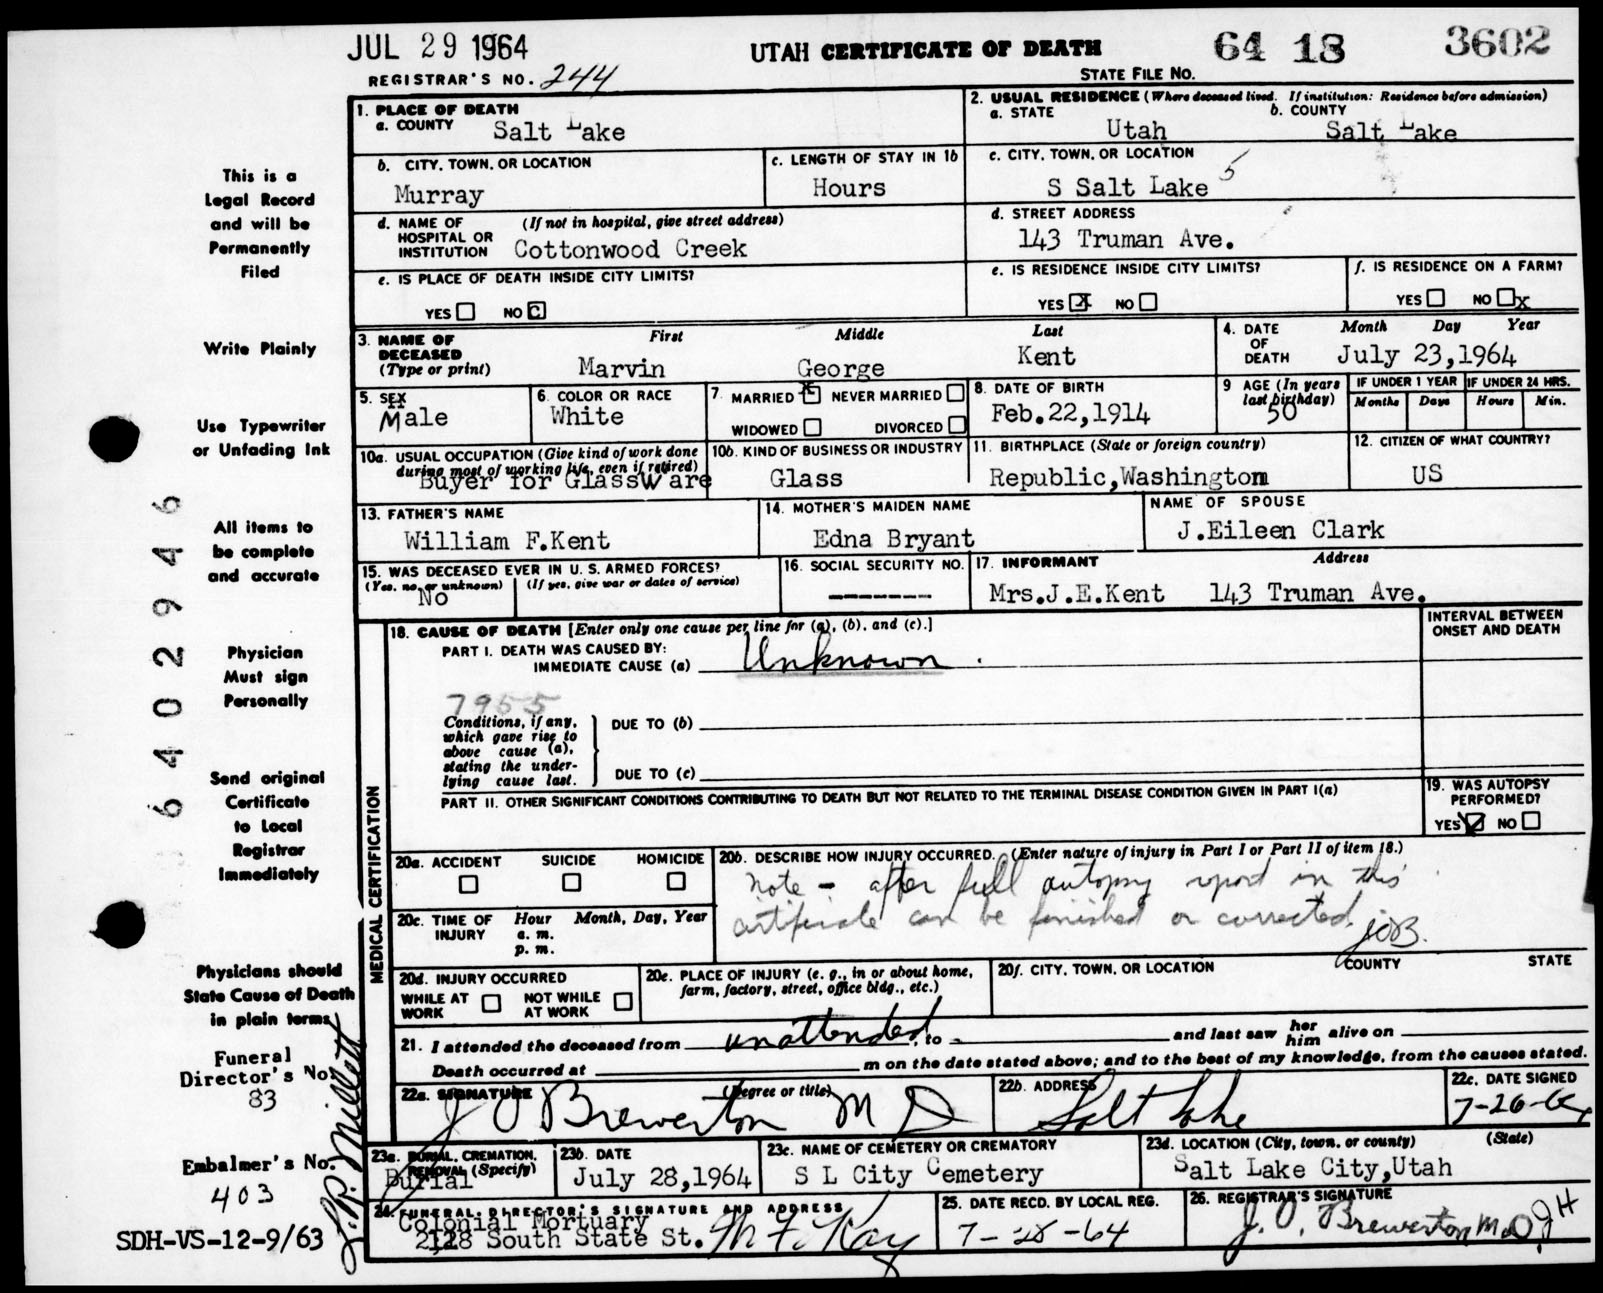 JUL 29 1964
UTAH CERTIFICATE OF DEATH
64 18 3602
REGISTRAR'S NO. 244
STATE FILE NO.
1. PLACE OF DEATH
a. COUNTY Salt Lake
2. USUAL RESIDENCE (Where deceased lived. If institution: Residence before admission)
a. STATE Utah
b. COUNTY Salt Lake
b. CITY, TOWN, OR LOCATION
Murray
c. LENGTH OF STAY IN 1b
Hours
c. CITY, TOWN, OR LOCATION
S Salt Lake 5
d. NAME OF HOSPITAL OR INSTITUTION (If not in hospital, give street address)
Cottonwood Creek
d. STREET ADDRESS
143 Truman Ave.
e. IS PLACE OF DEATH INSIDE CITY LIMITS?
YES NO C
e. IS RESIDENCE INSIDE CITY LIMITS?
YES X NO
f. IS RESIDENCE ON A FARM?
YES NO x
3. NAME OF DECEASED (Type or print)
First Middle Last
Marvin George Kent
4. DATE OF DEATH Month Day Year
July 23,1964
5. SEX
Male
6. COLOR OR RACE
White
7. MARRIED X NEVER MARRIED
WIDOWED DIVORCED
8. DATE OF BIRTH
Feb.22,1914
9 AGE (In years last birthday)
50
IF UNDER 1 YEAR
Months Days
IF UNDER 24 HRS.
Hours Min.
10a. USUAL OCCUPATION (Give kind of work done during most of working life, even if retired)
Buyer for GlassWare
10b. KIND OF BUSINESS OR INDUSTRY
Glass
11. BIRTHPLACE (State or foreign country)
Republic,Washington
12. CITIZEN OF WHAT COUNTRY?
US
13. FATHER'S NAME
William F.Kent
14. MOTHER'S MAIDEN NAME
Edna Bryant
NAME OF SPOUSE
J.Eileen Clark
15. WAS DECEASED EVER IN U. S. ARMED FORCES?
(Yes, no, or unknown) (If yes, give war or dates of service)
No
16. SOCIAL SECURITY NO.
-------
17. INFORMANT Address
Mrs.J.E.Kent 143 Truman Ave.
MEDICAL CERTIFICATION
18. CAUSE OF DEATH [Enter only one cause per line for (a), (b), and (c).]
INTERVAL BETWEEN
ONSET AND DEATH
PART I. DEATH WAS CAUSED BY:
IMMEDIATE CAUSE (a) Unknown.
7955
Conditions, if any,
which gave rise to
above cause (a),
stating the under-
lying cause last.
DUE TO (b)
DUE TO (c)
PART II. OTHER SIGNIFICANT CONDITIONS CONTRIBUTING TO DEATH BUT NOT RELATED TO THE TERMINAL DISEASE CONDITION GIVEN IN PART I(a)
19. WAS AUTOPSY
PERFORMED?
YES NO
20a. ACCIDENT SUICIDE HOMICIDE
20b. DESCRIBE HOW INJURY OCCURRED. (Enter nature of injury in Part I or Part II of item 18.)
note - after full autopsy report in this
certificate can be finished or corrected. JOB.
20c. TIME OF INJURY Hour Month, Day, Year
a. m.
p. m.
20d. INJURY OCCURRED
WHILE AT WORK NOT WHILE AT WORK
20e. PLACE OF INJURY (e. g., in or about home,
farm, factory, street, office bldg., etc.)
20f. CITY, TOWN, OR LOCATION COUNTY STATE
21. I attended the deceased from unattended, to - and last saw her him alive on
Death occurred at m on the date stated above; and to the best of my knowledge, from the causes stated.
22a. SIGNATURE (Degree or title)
J O Brewerton M D
22b. ADDRESS
Salt Lake
22c. DATE SIGNED
7-26-64
23a. BURIAL, CREMATION, REMOVAL (Specify)
Burial
23b. DATE
July 28,1964
23c. NAME OF CEMETERY OR CREMATORY
S L City Cemetery
23d. LOCATION (City, town, or county) (State)
Salt Lake City,Utah
24. FUNERAL DIRECTOR'S SIGNATURE AND ADDRESS
Colonial Mortuary
2128 South State St.
25. DATE RECD. BY LOCAL REG.
7-28-64
26. REGISTRAR'S SIGNATURE
J. O. Brewerton M.D. JH
This is a
Legal Record
and will be
Permanently
Filed
Write Plainly
Use Typewriter
or Unfading Ink
All items to
be complete
and accurate
Physician
Must sign
Personally
Send original
Certificate
to Local
Registrar
Immediately
Physicians should
State Cause of Death
in plain terms
Funeral
Director's No.
83
Embalmer's No.
403
SDH-VS-12-9/63
6402946